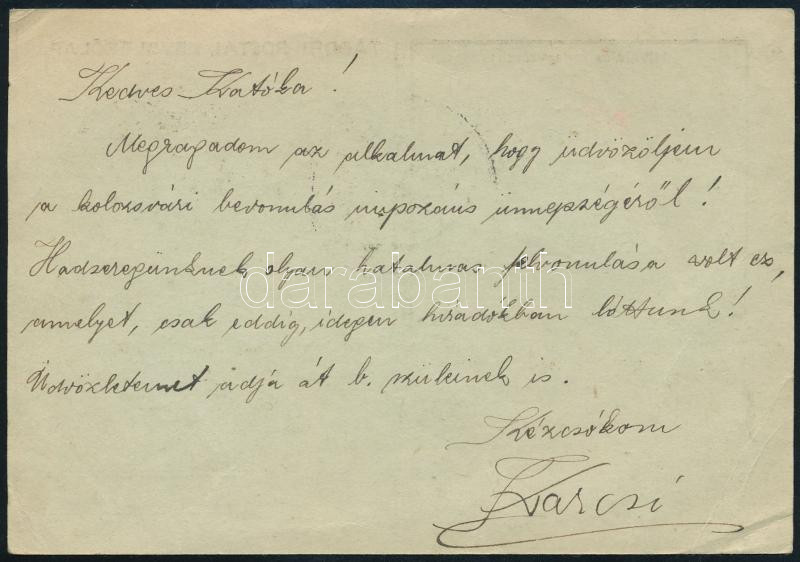 Kedves Katóka!
Megragadom az alkalmat, hogy üdvözöljem
a kolozsvári bevonulás impozáns ünnepségéről!
Hadseregünknek olyan hatalmas felvonulása volt ez,
amelyet, csak eddig, idegen híradókban láttunk!
Üdvözletemet adja át b. szüleinek is.
Kézcsókom
Karcsi
darabanth